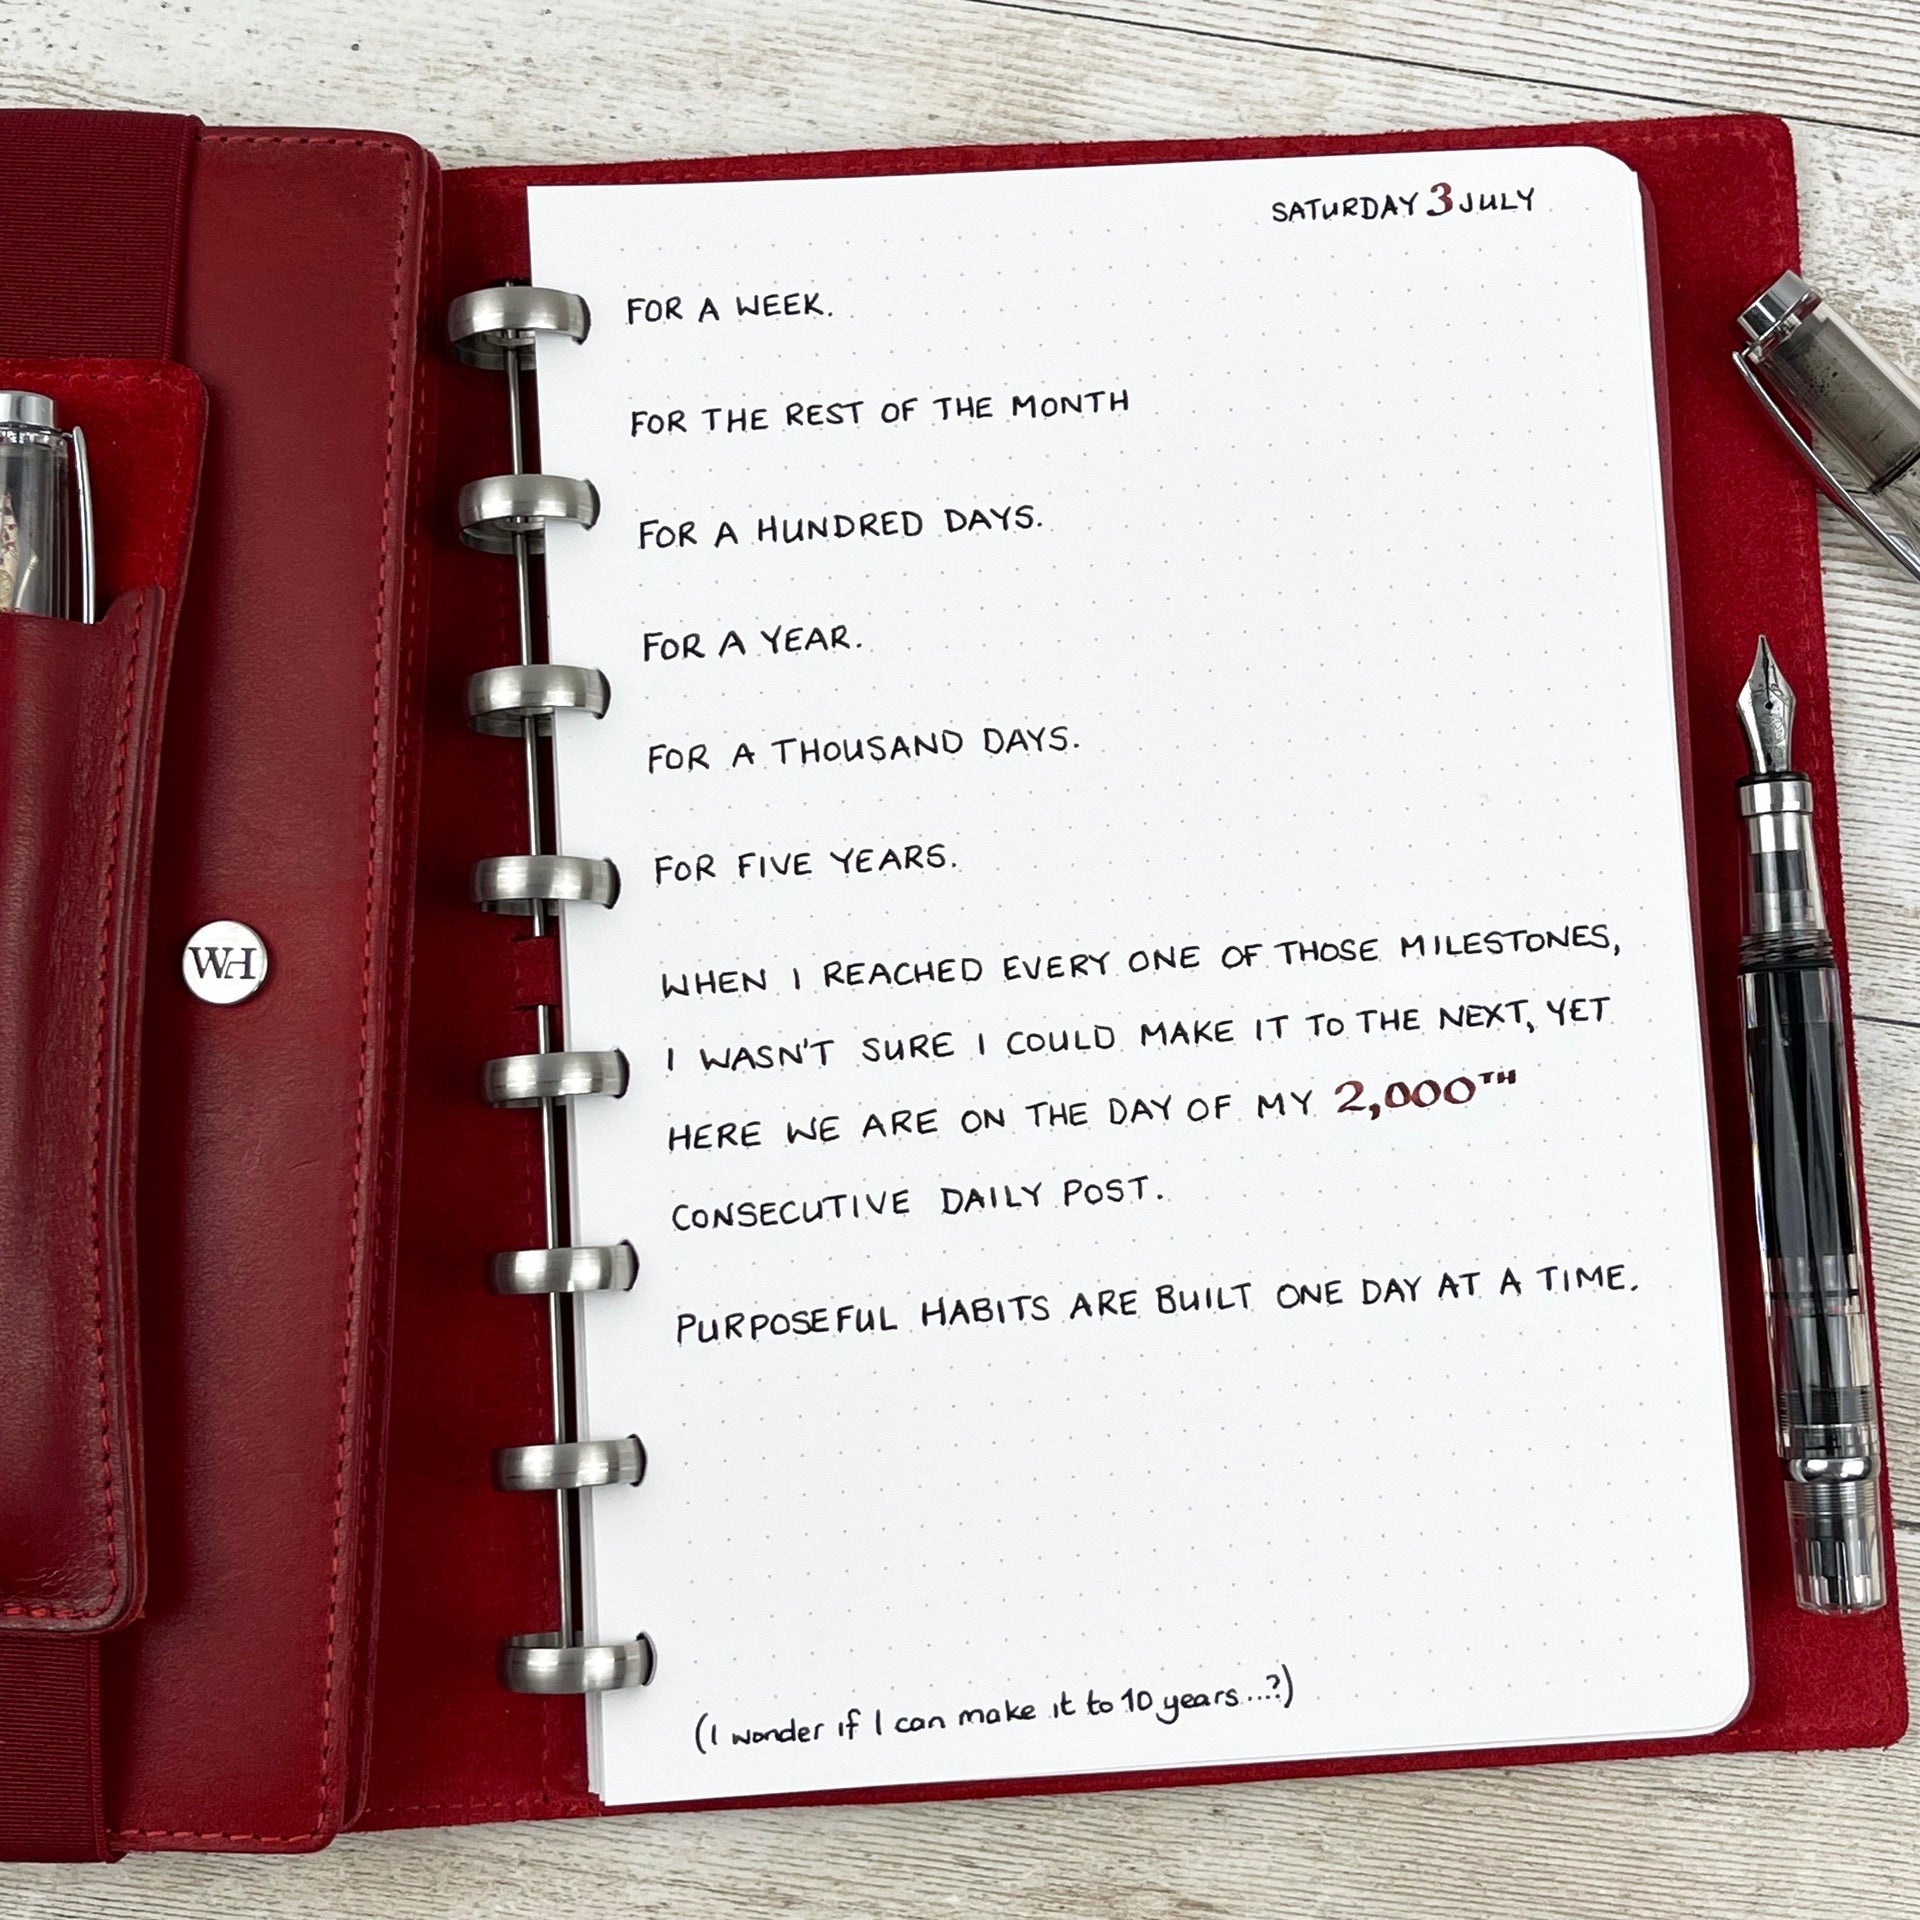 SATURDAY 3 JULY
FOR A WEEK.
FOR THE REST OF THE MONTH
FOR A HUNDRED DAYS.
FOR A YEAR.
FOR A THOUSAND DAYS.
FOR FIVE YEARS.
WHEN I REACHED EVERY ONE OF THOSE MILESTONES,
I WASN'T SURE I COULD MAKE IT TO THE NEXT, YET
HERE WE ARE ON THE DAY OF MY 2,000TH
CONSECUTIVE DAILY POST.
PURPOSEFUL HABITS ARE BUILT ONE DAY AT A TIME.
(I wonder if I can make it to 10 years...?)
WH